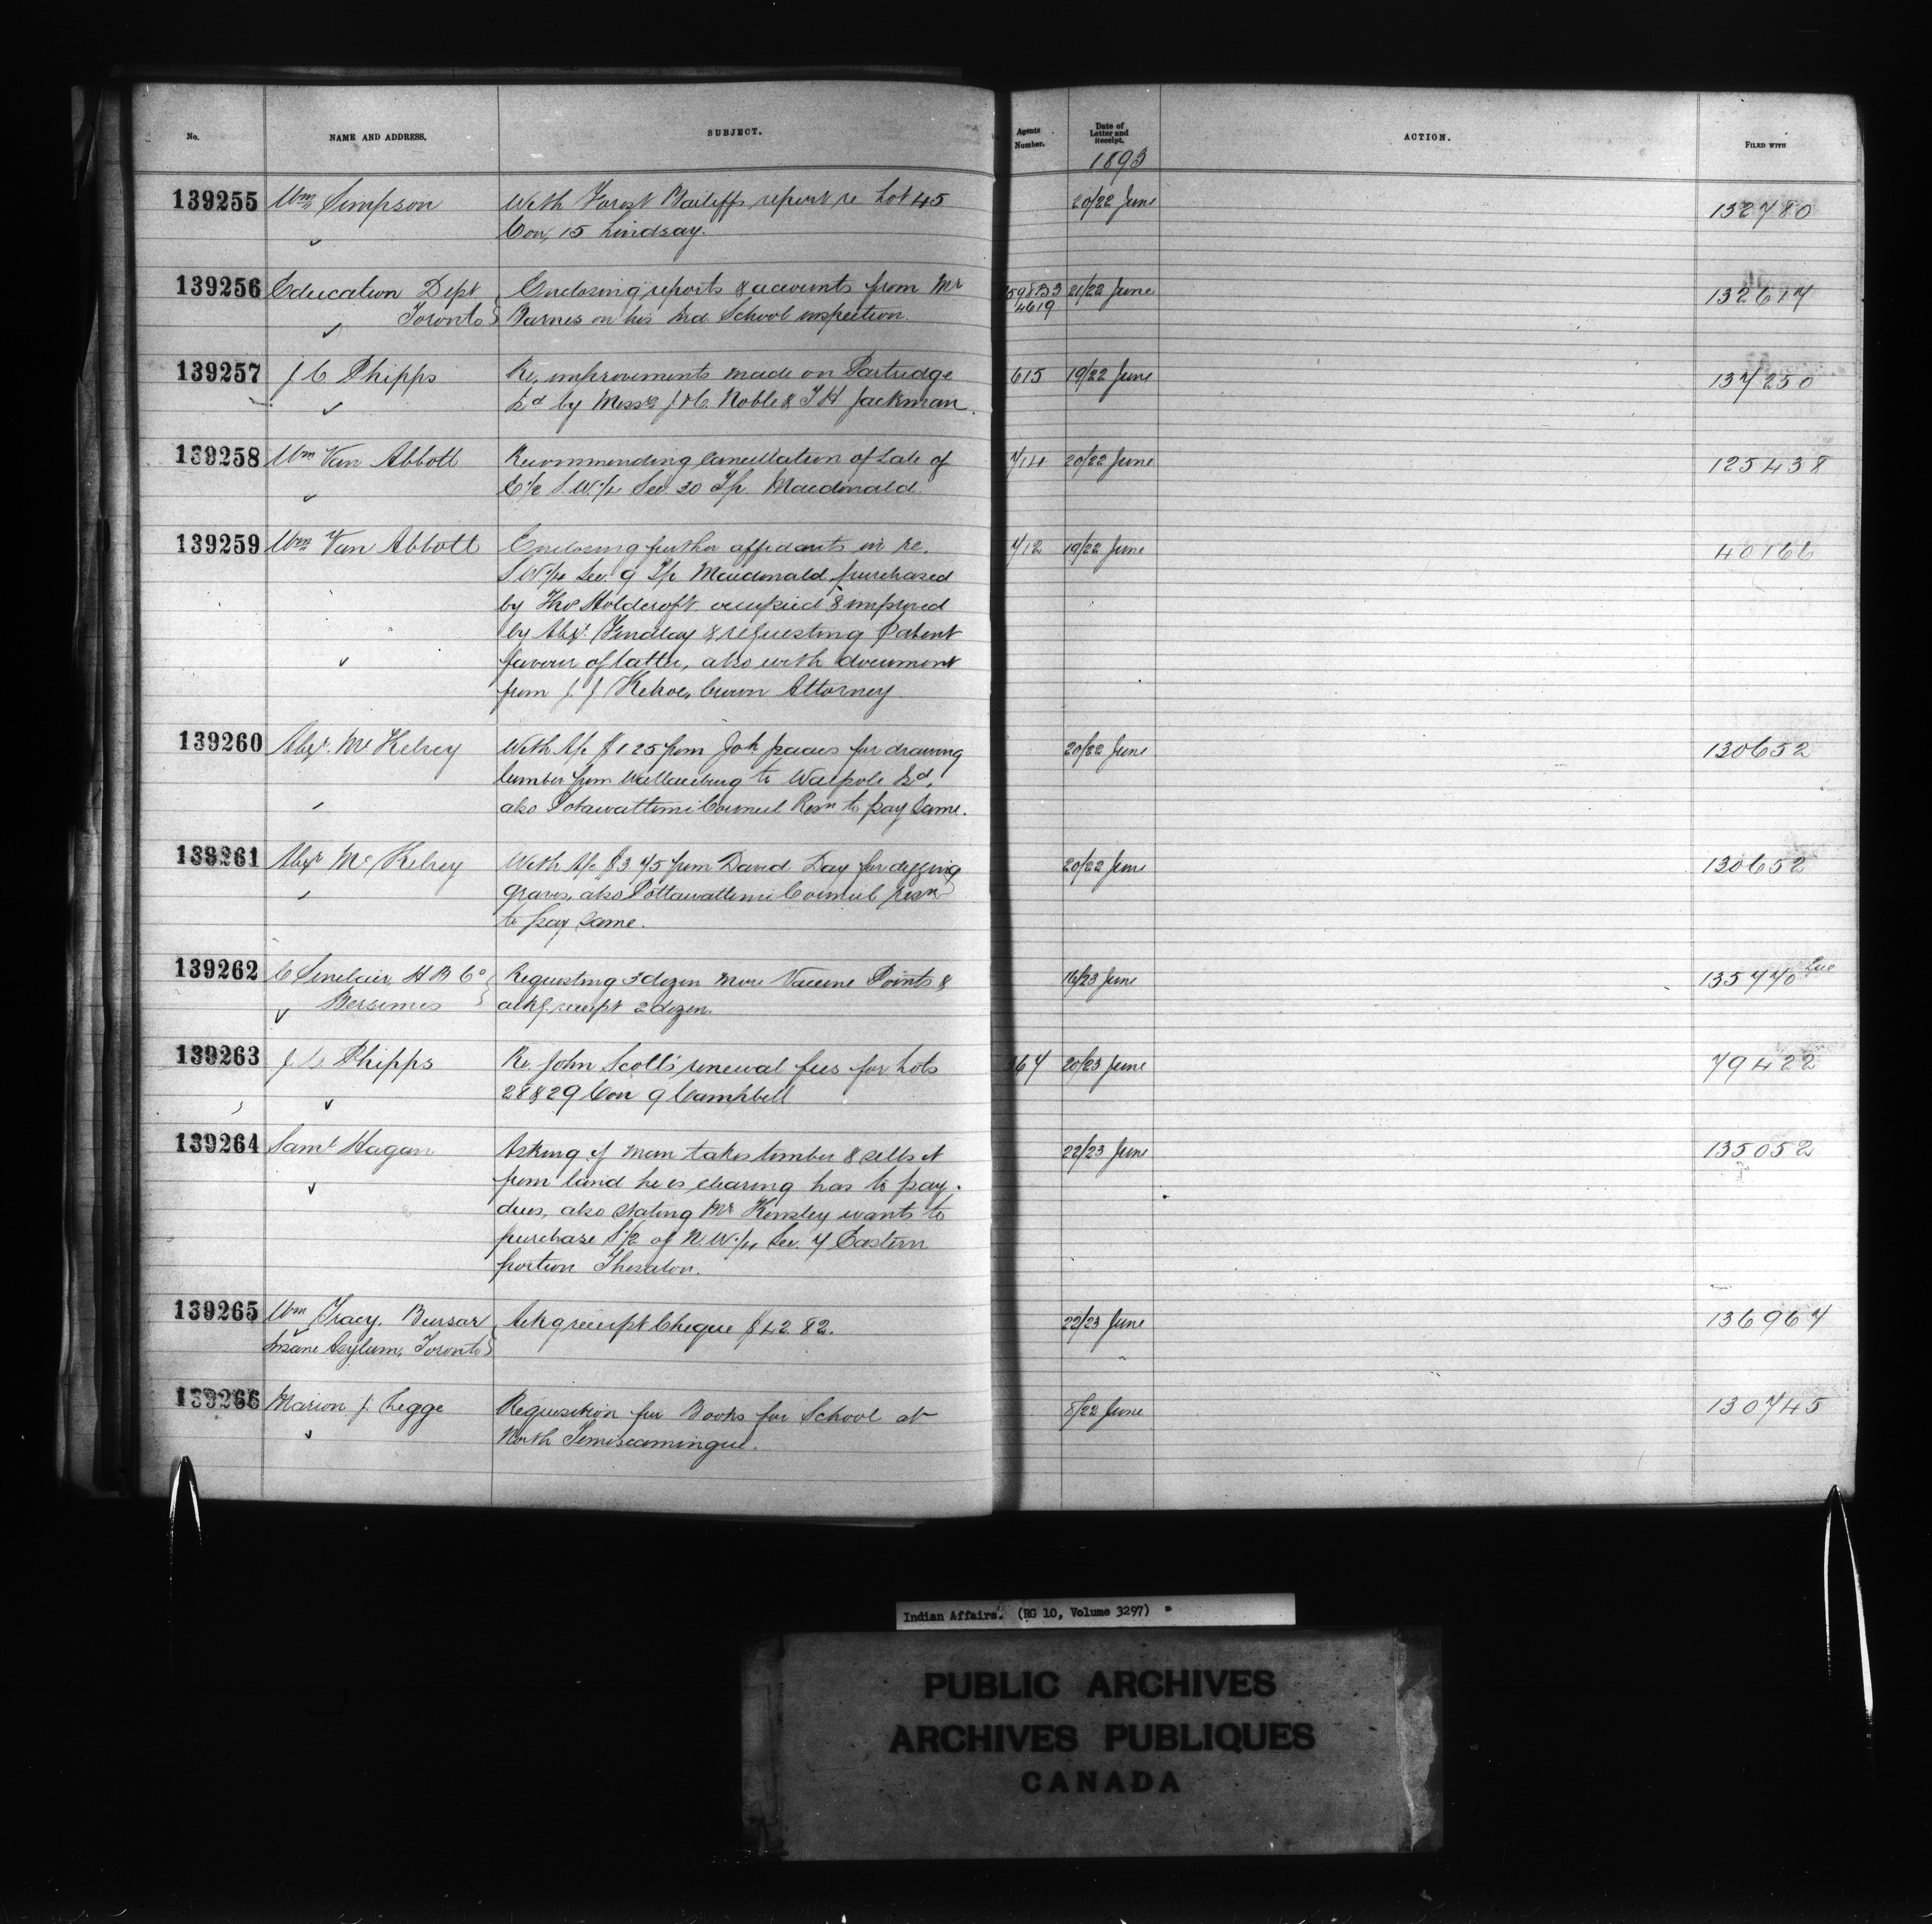 No. NAME AND ADDRESS. SUBJECT. Agents Number. Date of Letter and Receipt. ACTION. FILED WITH
1893
139255 Wm Simpson With Forest Bailiffs report re Lot 45 20/22 June 132780
Con, 15 Lindsay.
139256 Education Dept Enclosing reports & accounts from Mr 598B3 21/22 June 132617
Toronto Barnes on his Ind. School inspection. 4619
139257 J C Phipps Re, improvements made on Partridge 615 19/22 June 137250
Isd by Messrs J & C. Noble & T H Jackman.
139258 Wm Van Abbott Recommending Cancellation of Sale of 714 20/22 June 125438
E½ S.W.¼ Sec 30 Tp. Macdonald.
139259 Wm Van Abbott Enclosing further affidavits in re. 712 19/22 June 40166
S.W¼ Sec. 9 Tp Macdonald purchased
by Thos Holdcroft occupied & improved
by Alexr. Findlay & requesting Patent
favour of latter, also with document
from J. J Kehoe, Crown Attorney.
139260 Alexr. McKelvey With A/c $1.25 from Joh Isaacs for drawing 20/22 June 130652
lumber from Wallaceburg to Walpole Isd,
also Potawattimi Council Resn to pay same.
139261 Alexr McKelvey With A/c $3.75 from David Day for digging 20/22 June 130652
graves, also Pottawattimi Council resn
to pay same.
139262 C Sinclair, H B Co Requesting 3 dozen more Vaccine Points & 16/23 June 135770
Bersimis ackg receipt 2 dozen.
139263 J C Phipps Re. John Scott's renewal fees for Lots 67 20/23 June 79422
28 & 29 Con 9 Campbell
139264 Saml Hagan Asking if man takes timber & sells it 22/23 June 135052
from land he is clearing has to pay
dues, also stating Mr Kensley wants to
purchase S½ of N.W.¼ Sec. 7 Eastern
portion Thessalon.
139265 Wm Tracy. Bursar Ackg receipt Cheque $42.82. 22/23 June 136967
Insane Asylum, Toronto
139266 Marion J. Legge Requisition for Books for School at 8/22 June 130745
North Temiscamingue.
Indian Affairs. (RG 10, Volume 3297)
PUBLIC ARCHIVES
ARCHIVES PUBLIQUES
CANADA